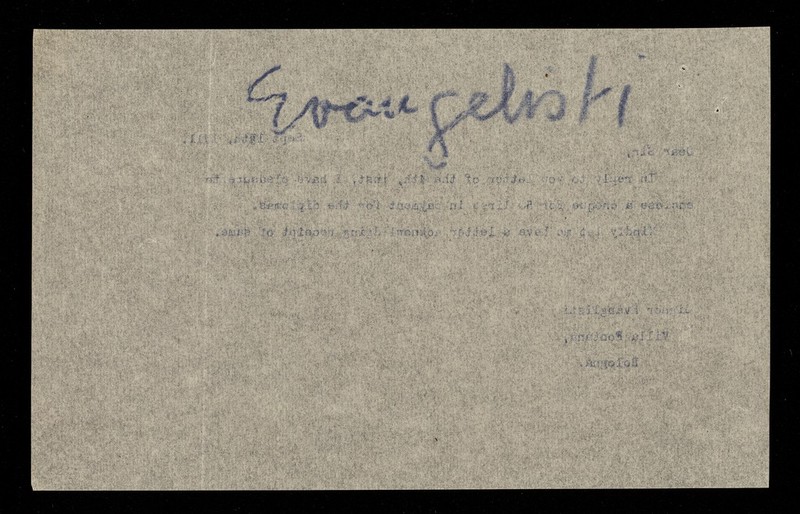 Evangelisti
Sept 18th, 1911.
Dear Sir,
In reply to you letter of the 4th, inst, I have pleasure in
enclose a cheque for 50 lire, in payment for the diplomas.
Kindly let me have a letter acknowledging receipt of same.
Signor Evangelisti
Villa
Bologna.